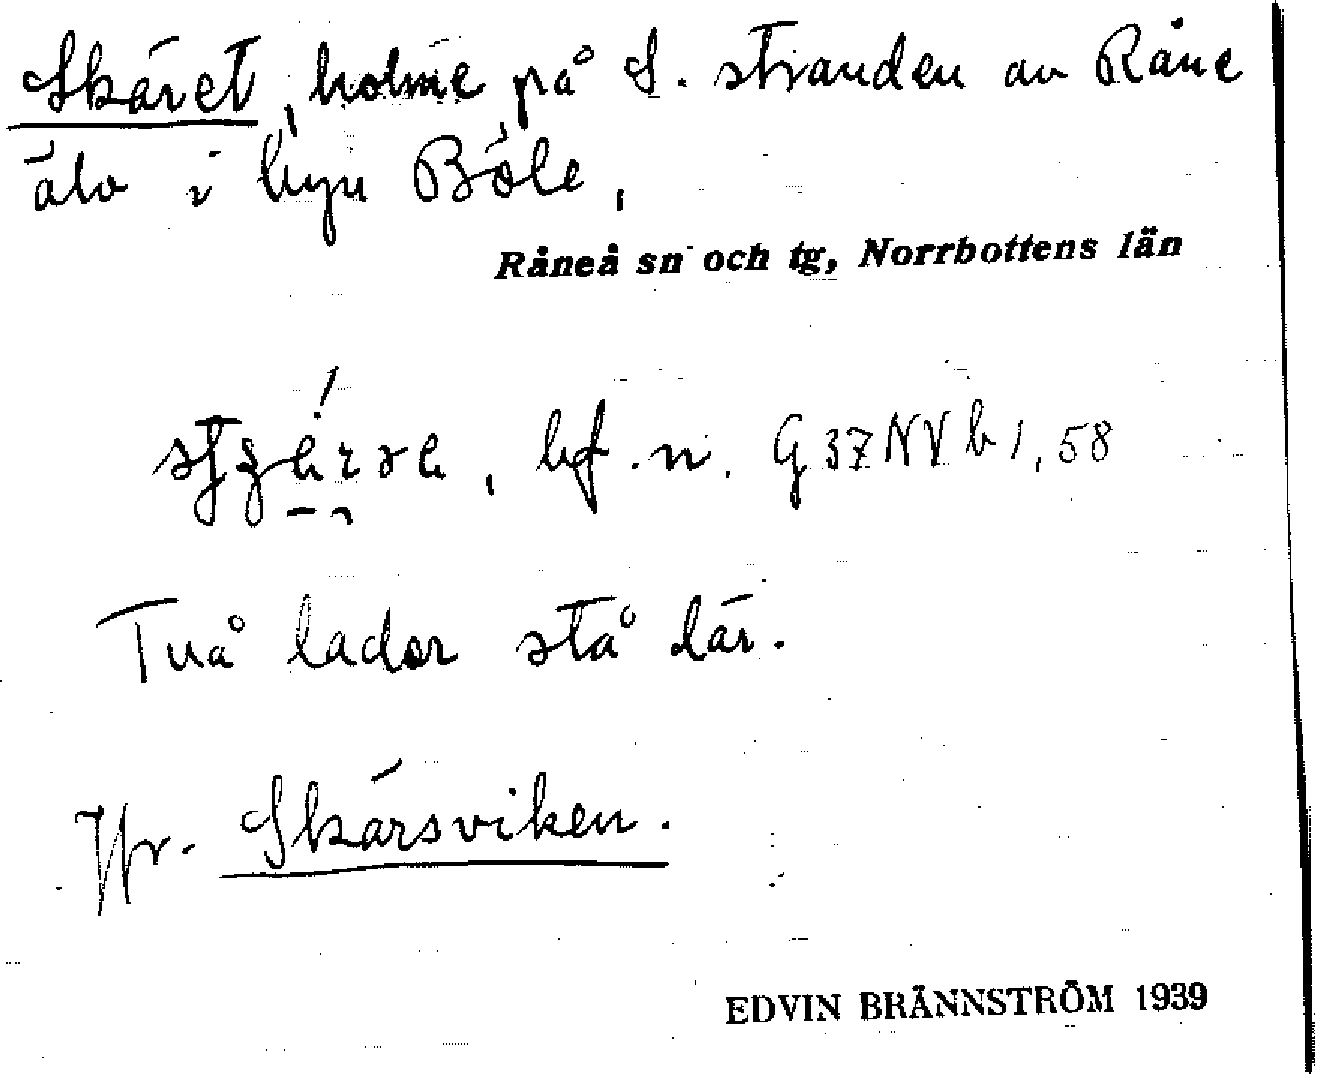 Skäret, holme på S. stranden av Råne
älv i byn Böle,
Råneå sn och tg, Norrbottens län
bf. n. G 37 NV b 1, 58
Två lador stå där.
Jfr. Skärsviken.
EDVIN BRÄNNSTRÖM 1939